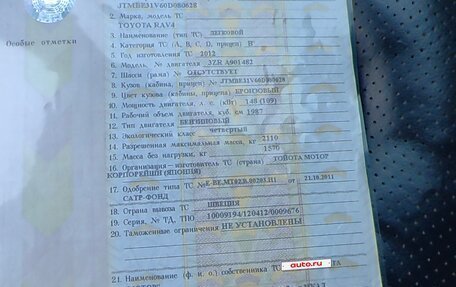 JTMBE31V60D080628
2. Марка, модель ТС
TOYOTA RAV4
3. Наименование (тип ТС) ЛЕГКОВОЙ
Особые отметки
4. Категория ТС (А, В, С, D, прицеп) В
5. Год изготовления ТС 2012
6. Модель, № двигателя 3ZR A901482
7. Шасси (рама) № ОТСУТСТВУЕТ
8. Кузов (кабина, прицеп) № JTMBE31V60D080628
9. Цвет кузова (кабины, прицепа) БРОНЗОВЫЙ
10. Мощность двигателя, л. с. (кВт) 148 (109)
11. Рабочий объем двигателя, куб. см 1987
12. Тип двигателя БЕНЗИНОВЫЙ
13. Экологический класс четвертый
14. Разрешенная максимальная масса, кг 2110
15. Масса без нагрузки, кг 1570
16. Организация—изготовитель ТС (страна) ТОЙОТА МОТОР
КОРПОРЕЙШН (ЯПОНИЯ)
17. Одобрение типа ТС № E-BE.MT02.B.00203.П1 от 21.10.2011
САТР-ФОНД
18. Страна вывоза ТС ШВЕЦИЯ
19. Серия, № ТД, ТПО 10009194/120412/0009676
20. Таможенные ограничения НЕ УСТАНОВЛЕНЫ
auto.ru
21. Наименование (ф. и. о.) собственника ТС